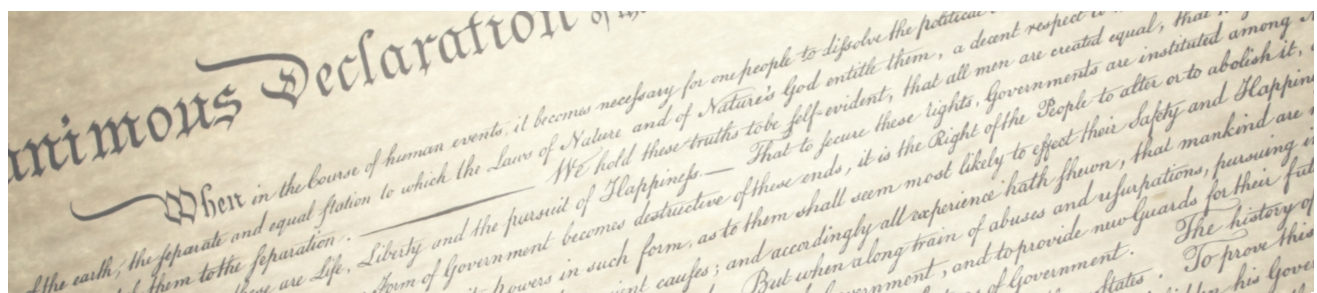 animous Declaration of the
When in the Course of human events, it becomes necessary for one people to dissolve the political
of the earth, the separate and equal station to which the Laws of Nature and of Nature's God entitle them, a decent respect to
them to the separation. We hold these truths to be self-evident, that all men are created equal, that
these are Life, Liberty and the pursuit of Happiness.— That to secure these rights, Governments are instituted among
Form of Government becomes destructive of these ends, it is the Right of the People to alter or to abolish it,
powers in such form, as to them shall seem most likely to effect their Safety and Happin
causes; and accordingly all experience hath shewn, that mankind are
But when a long train of abuses and usurpations, pursuing
Government, and to provide new Guards for their fut
of Government. The history of
States. To prove this
his Gover